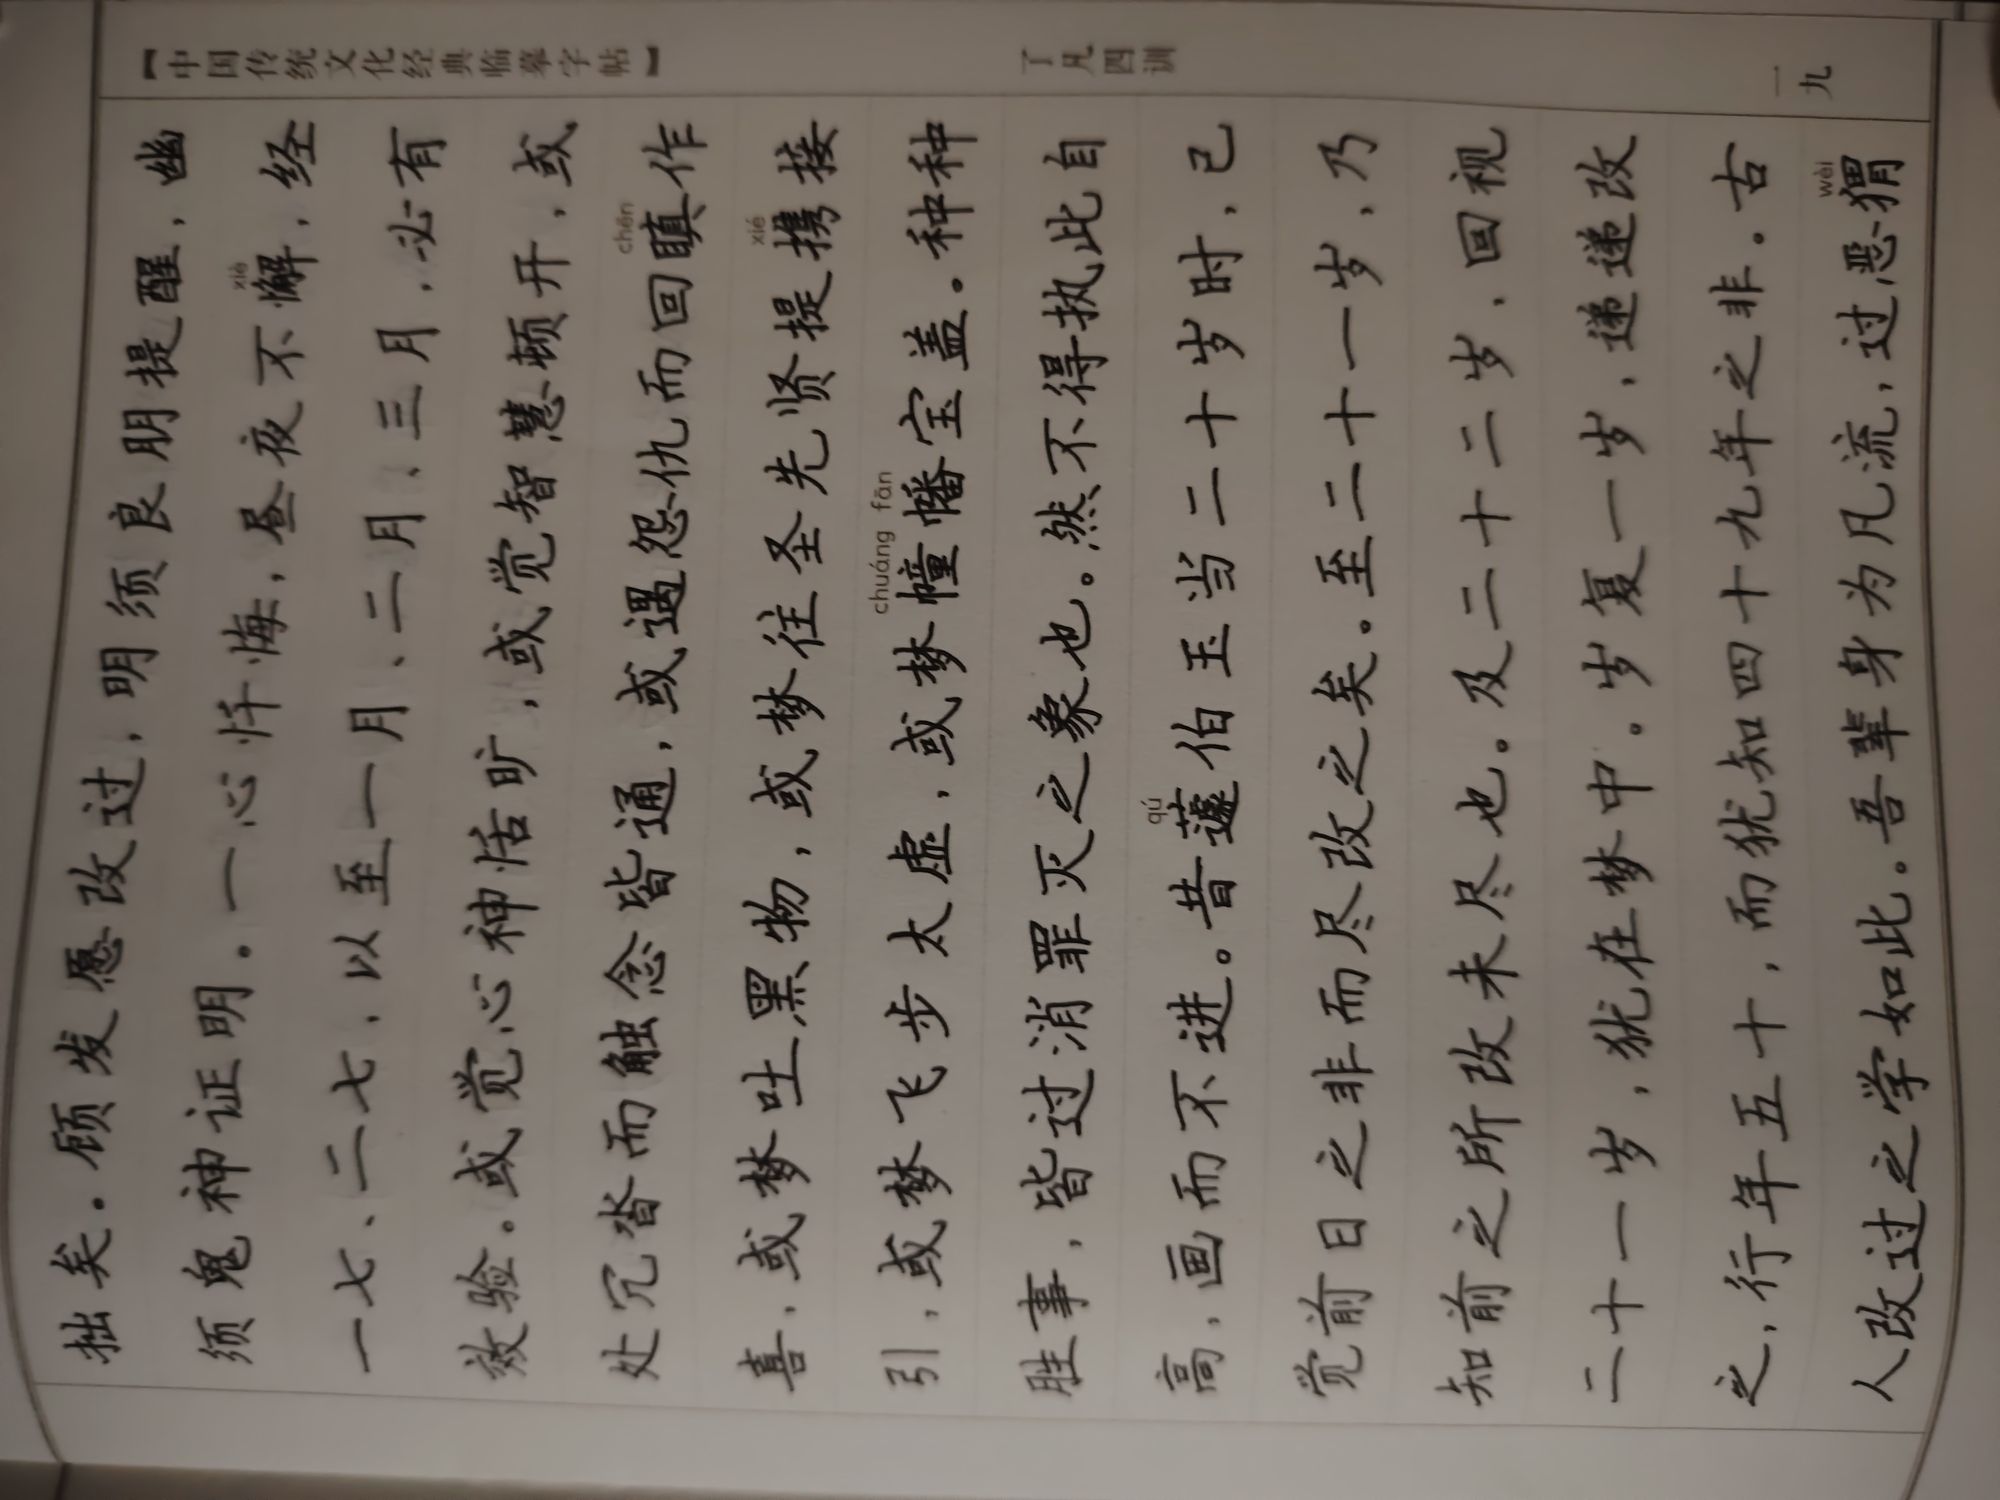 【中国传统文化经典临摹字帖】 了凡四训 一九
拙矣。顾发愿改过，明须良朋提醒，幽
须鬼神证明。一心忏悔，昼夜不懈，经
xiè
一七、二七，以至一月、二月、三月，必有
效验。或觉心神恬旷，或觉智慧顿开，或
处冗沓而触念皆通，或遇怨仇而回瞋作
chēn
喜，或梦吐黑物，或梦往圣先贤提携接
xié
引，或梦飞步太虚，或梦幢幡宝盖。种种
chuáng fān
胜事，皆过消罪灭之象也。然不得执此自
高，画而不进。昔蘧伯玉当二十岁时，已
qú
觉前日之非而尽改之矣。至二十一岁，乃
知前之所改未尽也。及二十二岁，回视
二十一岁，犹在梦中。岁复一岁，递递改
之，行年五十，而犹知四十九年之非。古
人改过之学如此。吾辈身为凡流，过恶猬
wèi